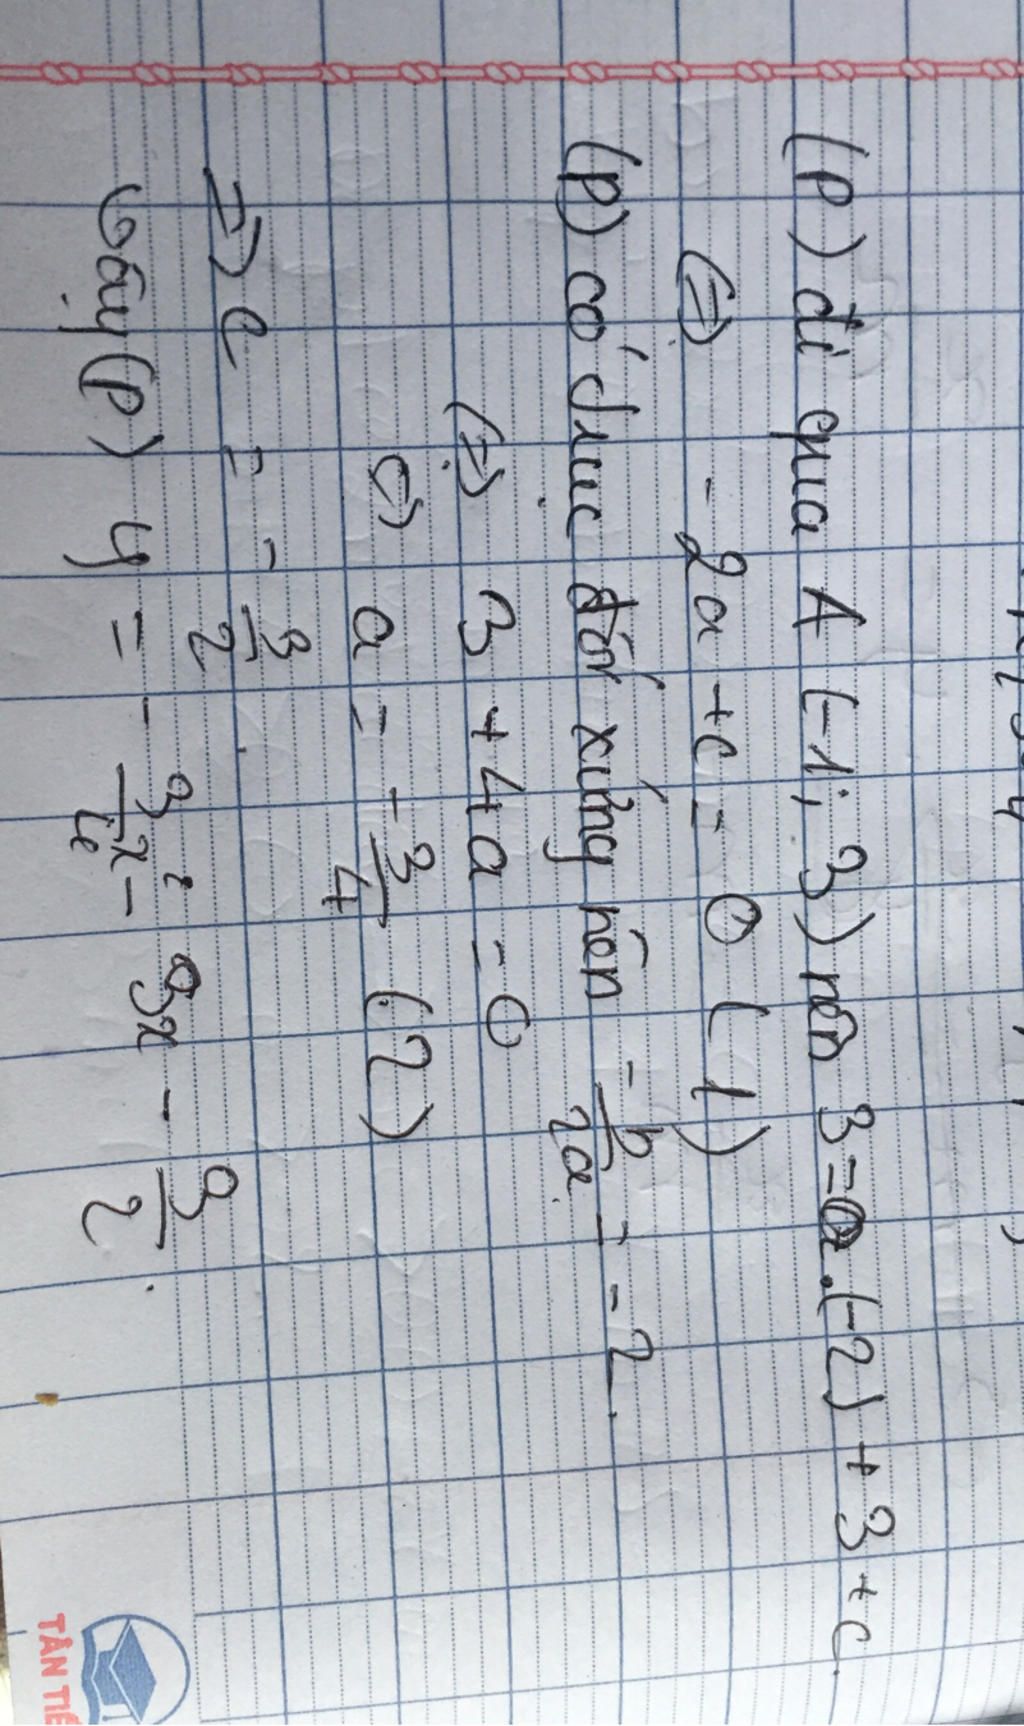 (P) đi qua A (-1; 3) nên 3 = a.(-2) + 3 + c
⇔ - 2a + c = 0 (1)
(P) có trục đối xứng nên -b/2a = -2
⇔ 3 + 4a = 0
⇔ a = -3/4 (2)
⇒ c = - 3/2
Vậy (P) y = - 3/4 x² - 3x - 3/2
TÂN TIẾ